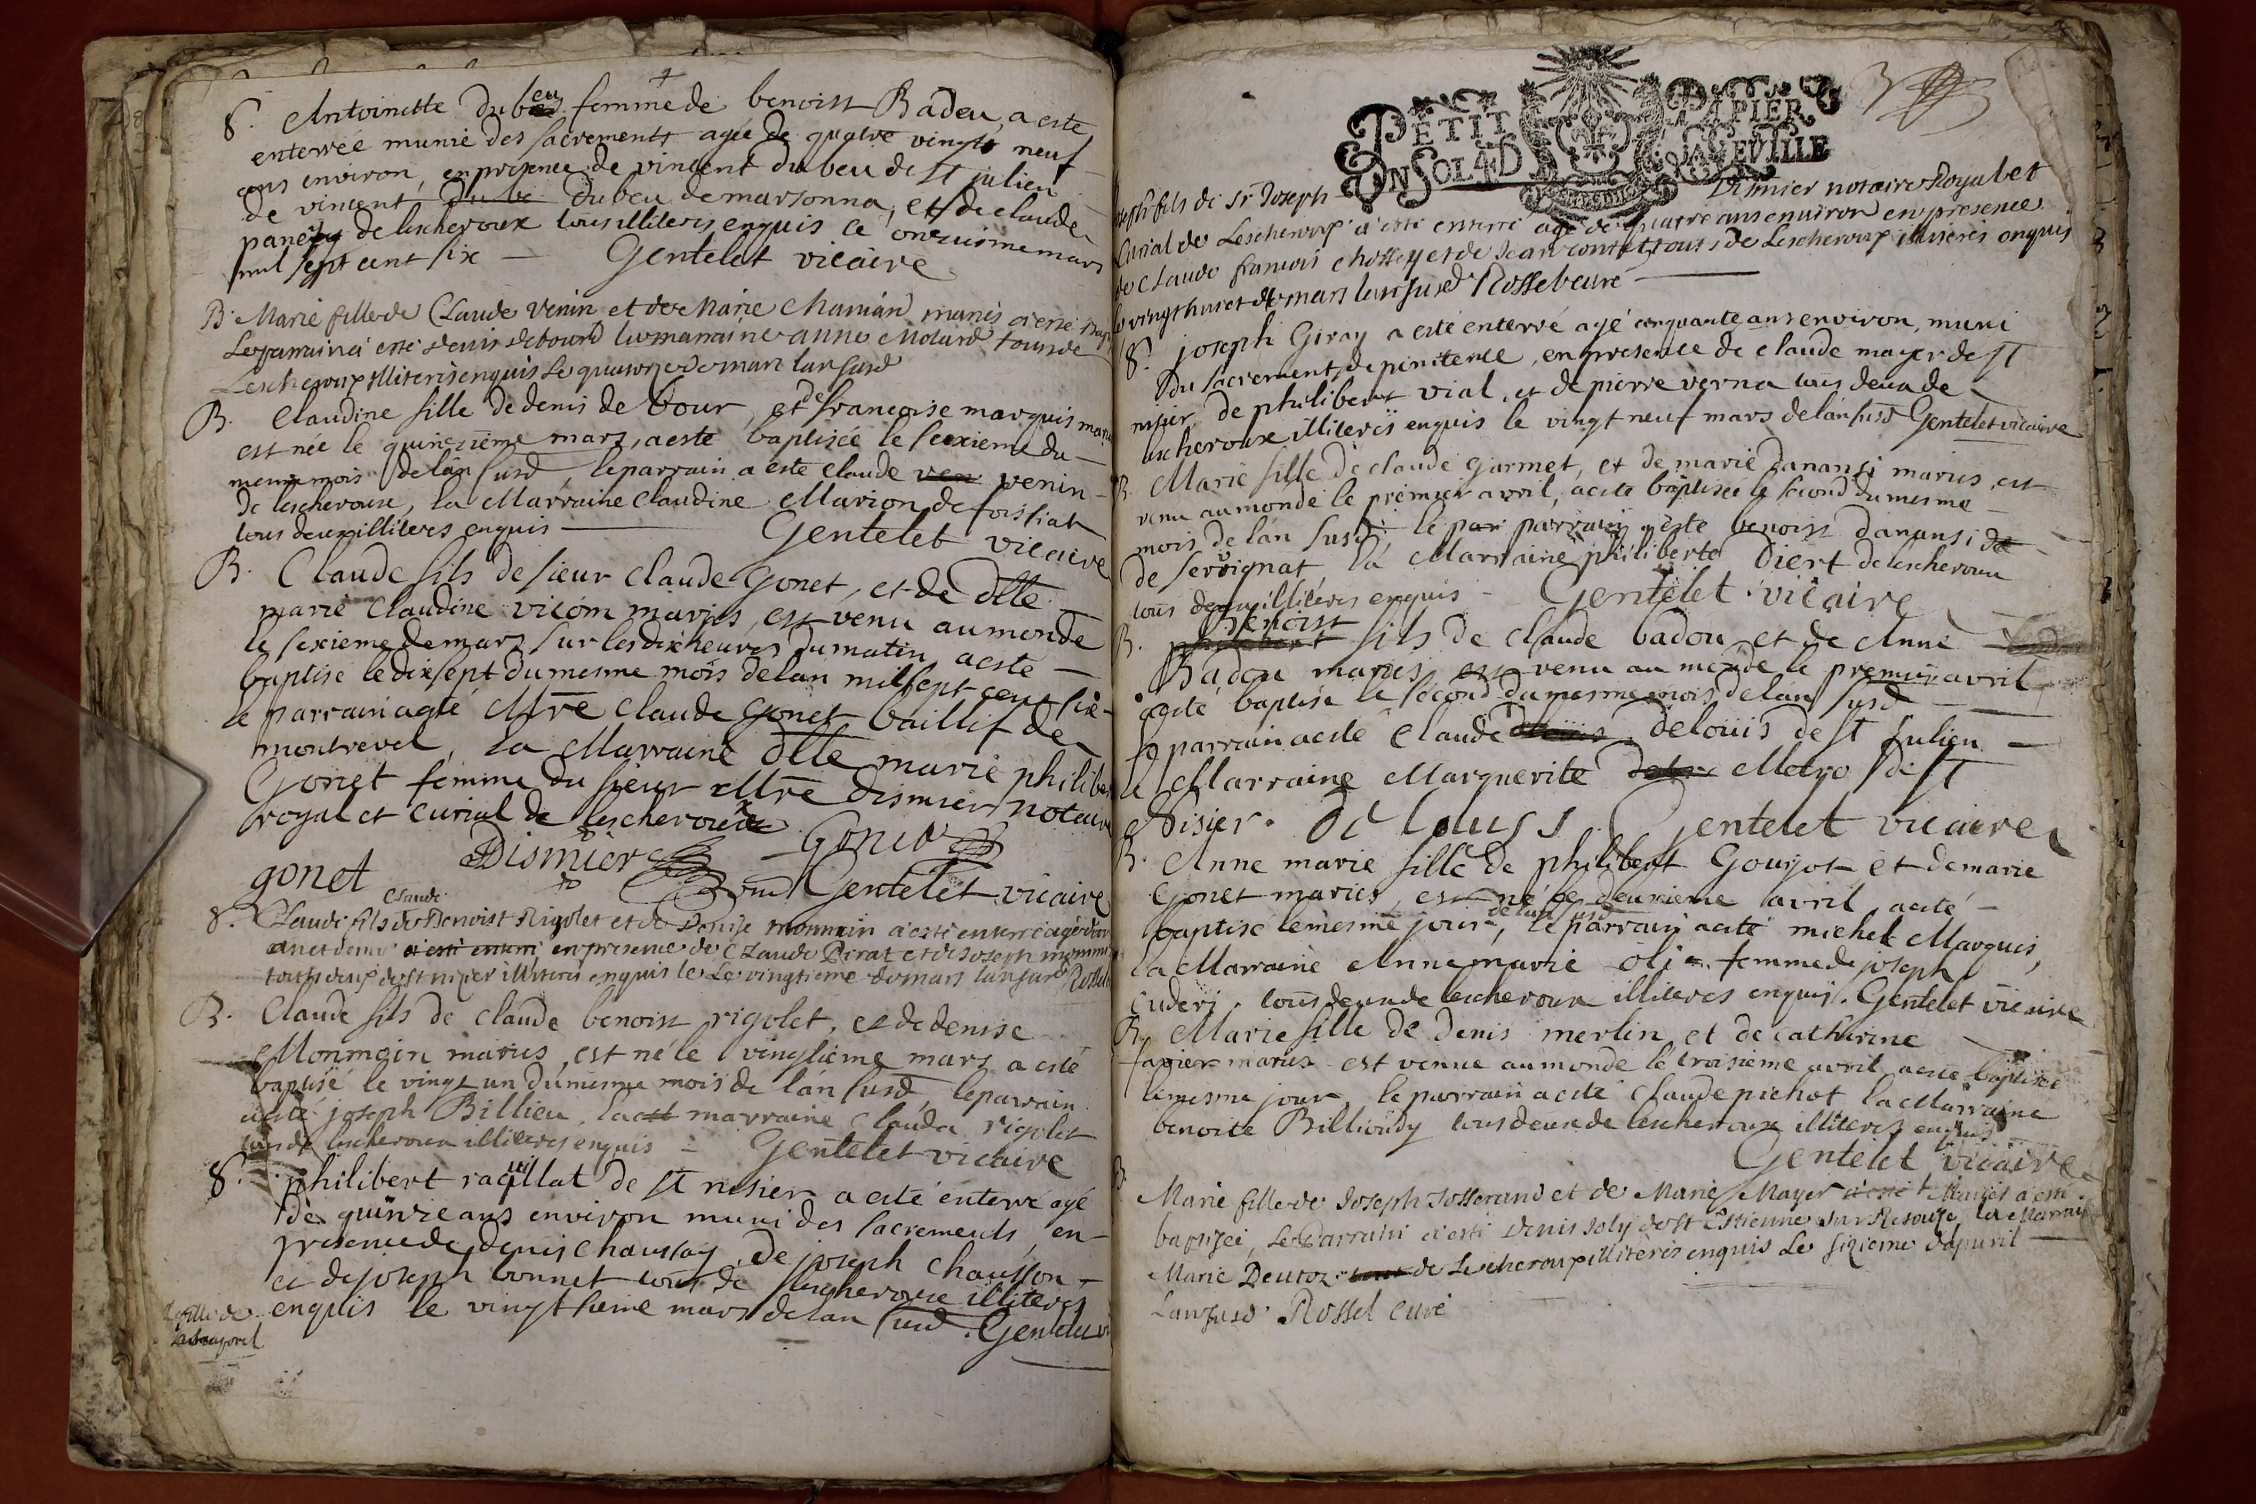 8. Antoinette Dubeu femme de benoist Badeu, a este
enterrée munie des sacrements agée de quatre vingts neuf
ans environ, en présence de vincent dubeu de st julien
de vincent du be dubeu de marsonna, et de claude
panety de lescheroux tous illiteres enquis ce onzuisme mars
mil sept cent six — Gentelet vicaire
B. Marie fille de Claude Venin et de Marie Chanian mariés a esté bap
Le parrain a esté denis debourd la marraine anne Molard tous de
Lescheroux illiteres enquis Le quatorze de mars lan susd
B. Claudine fille de denis de bour, et de francoise marquis marie
est née le quinzième mars, a este baptisée le seixieme du
meme mois de lân susd le parrain a este claude ven venin
de lescheroux, la Marraine Claudine Marion de foissiat
tous deux illiteres enquis — Gentelet vicaire
B. Claude fils de sieur claude Gonet, et de dlle
marie Claudine vicom mariés, est venu au monde
le sexieme de mars sur les dix heures du matin a esté
baptisé le dixsept du mesme mois de lan mil sept cent six
le parrain a esté Mre Claude Gonet baillif de
montrevel, la Marraine dlle marie philiber
Gonet femme du sieur Mre Dismier notaire
royal et curial de lescheroux
gonet Dismier Gonet
Gentelet vicaire
8. Claude
Claude fils de Benoist Rigolet et de Denise monmin a esté enterré agé d'un
an et demi a esté enterré en presence de Claude Pirat et de Joseph monm
touts deux de st nizier illiteres enquis le Le vingtieme de mars lan susd Rossel
B. Claude fils de claude benoist rigolet, et de denise
Monmoin mariés, est né le vingtième mars a esté
baptisé le vingt un du mesme mois de lân susd, le parrain
a esté joseph Billieu, la est marraine Clauda rigolet
tous de lescheroux illiteres enquis — Gentelet vicaire
8. philibert raquillat de st nisier a esté enterré agé
de quinze ans environ muni des sacrements en
presence de denis chaussay, de joseph chausson
et de joseph bonnet tous de lescheroux illiteres
enquis le vingt mars de lan susd. Gentelet
fille de
joseph fils de Sr Joseph Dismier notaire Royal et
Curial de Lescheroux a esté enterré agé de quatre ans environ en presence
de Claude francois chossey et de Jean contet touts de Lescheroux illiteres enquis
le vingt huict de mars lan susd Rossel curé
PETIT PAPIER
UN SOL 4 D LA FEUILLE
8. joseph Giray a esté enterré agé cinquante ans environ, muni
du sacrement de penitence, en presence de claude mayer de st
nisier, de philibert vial, et de pierre verna tous deux de
lescheroux illiteres enquis le vingt neuf mars de lân susd Gentelet vicaire
B. Marie fille de claude garmet, et de marie danansi mariés, est
venu au monde le premier avril, a este baptisée le second du mesme
mois de lân susd: le par parrain a este benoist danansi de
de servignat la Marraine philiberte Diert de lescheroux
tous deux illiteres enquis — Gentelet vicaire
B. benoist
philibert fils de claude badou et de Anne
Badou mariés est venu au monde le premier avril
a esté baptisé le second du mesme mois de lân susd
le parrain a esté Claude deloüis de st Julien
la Marraine Marguerite Metro de st
Disier. De Louis Gentelet vicaire
B. Anne marie fille de philibert Goujot et de marie
Gonet mariés, est née le deuxieme avril, a esté
baptisé le mesme jour de lan susd, le parrain a esté michel Marquis,
la Marraine Anne marie oli femme de joseph
cuderi. tous deux de lescheroux illiteres enquis. Gentelet vicaire
B. Marie fille de Denis merlin et de catherine
favier mariés est venue au monde le troisieme avril a este baptisée
le mesme jour, le parrain a esté Claude pichot la Marraine
benoite Billioudy tous deux de lescheroux illiteres enquis
Gentelet vicaire
B
Marie fille de Joseph Josserand et de Marie Mayer a esté Mariés a esté
baptizée, Le Parrain a esté Denis Joly de st Estienne sur Resouze, La Marrain
Marie Deutoz tous de Lescheroux illiteres enquis Le sixieme d'apuril
Lan susd Rossel curé